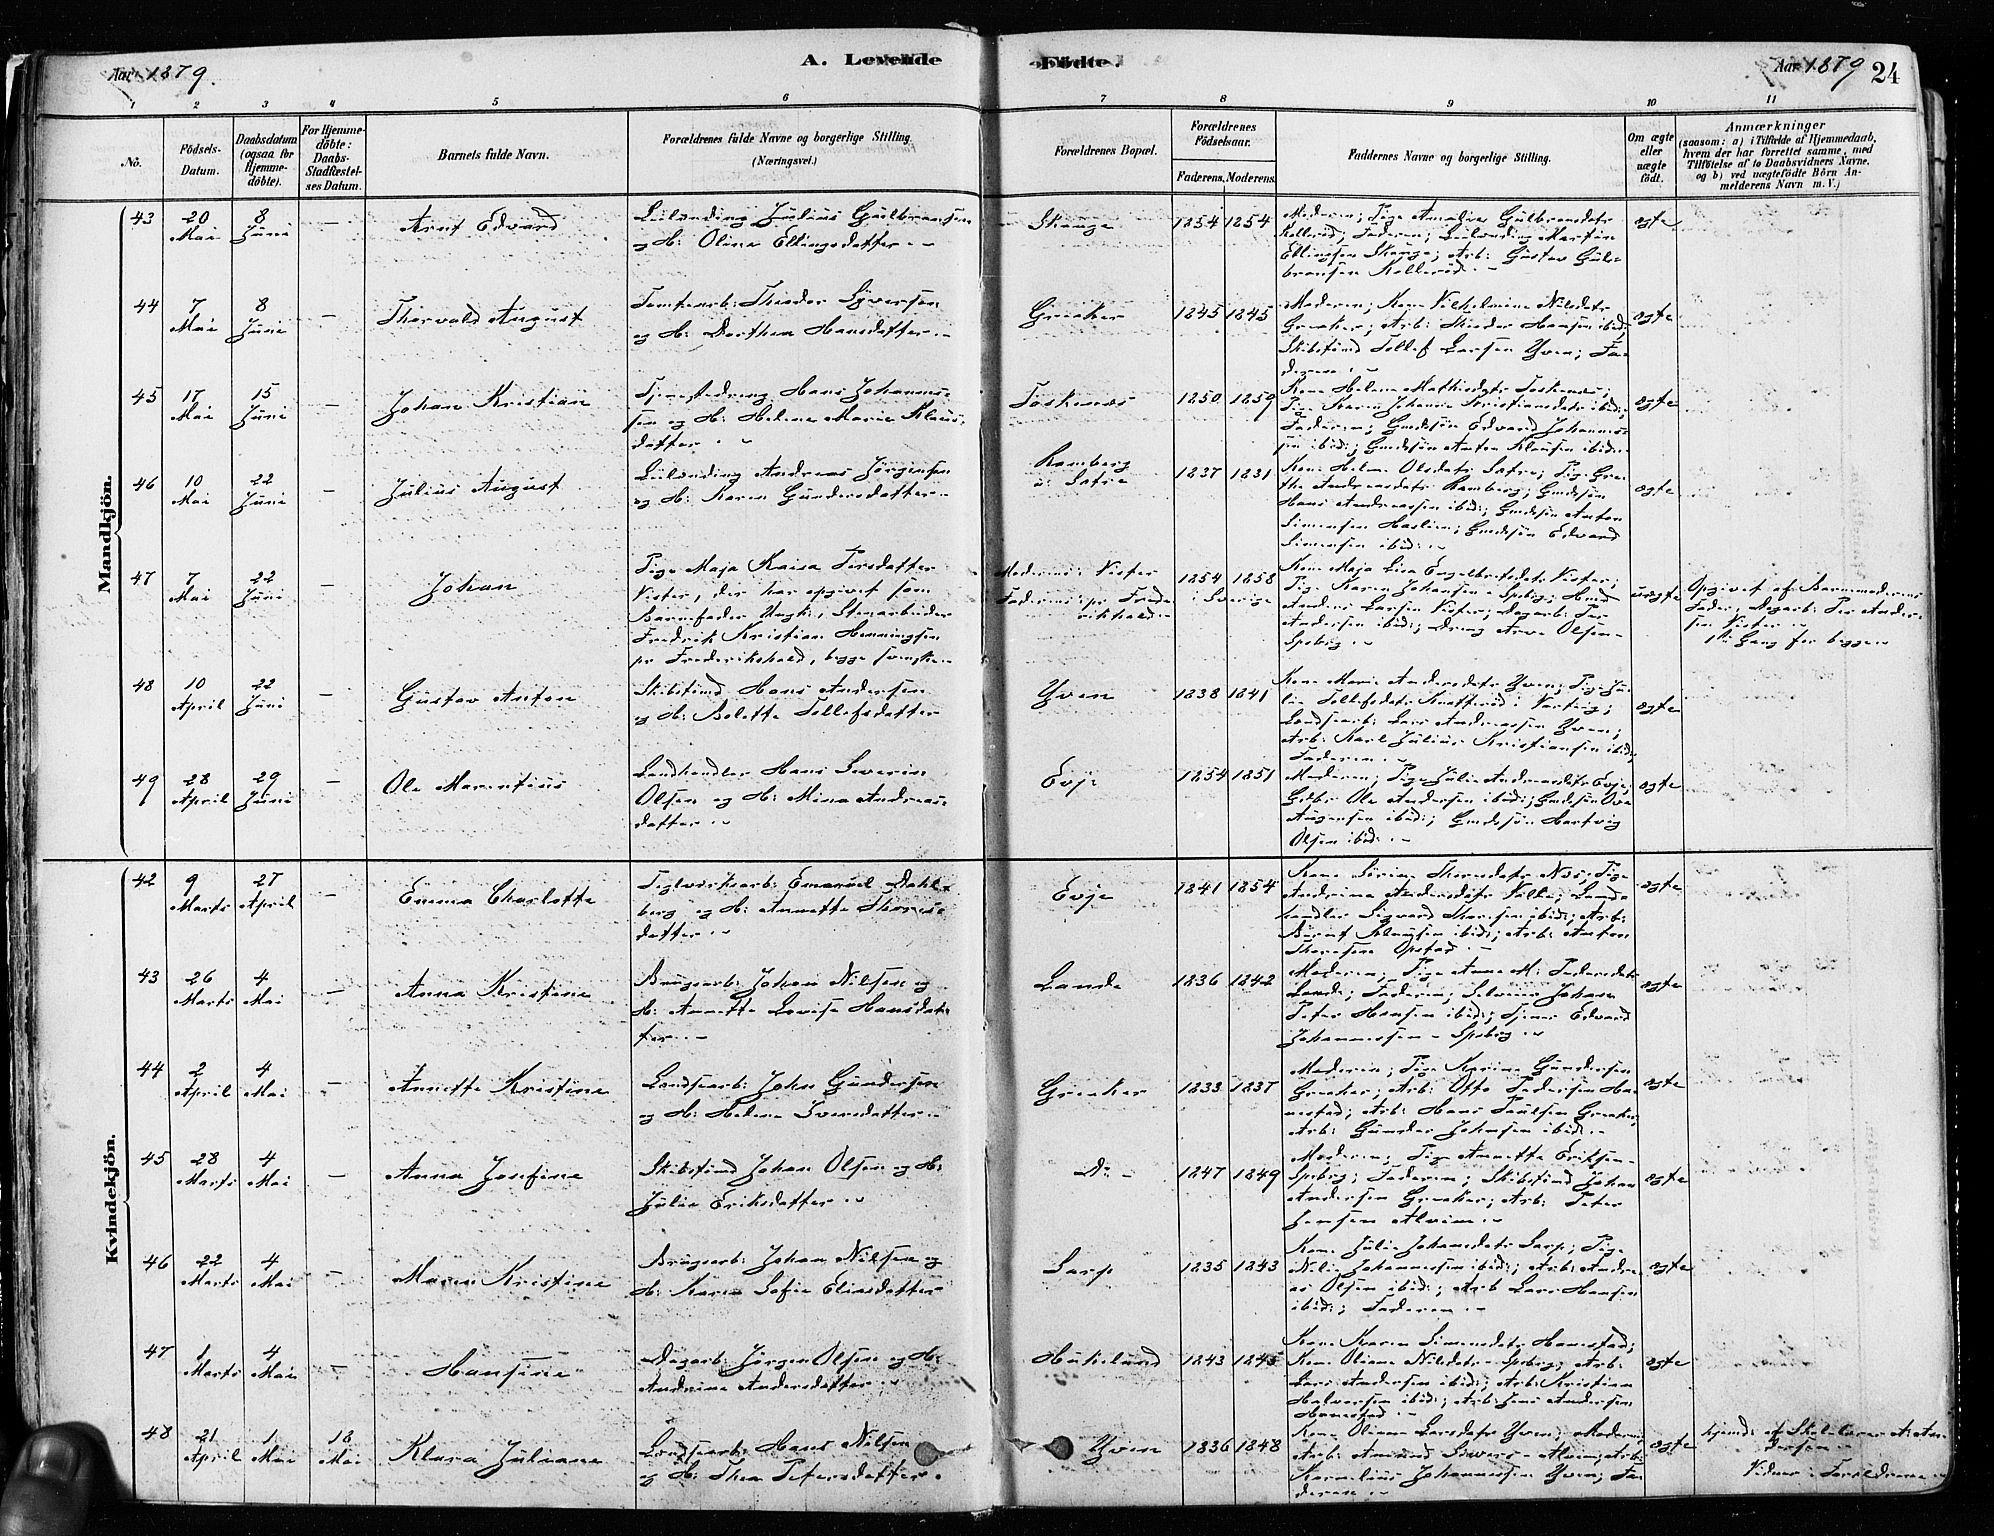 Aar 1879.
A. Levende
Födte.
Aar 1879
24
1 2 3 4 5 6 7 8 9 10 11
No.
Födsels-
Datum.
Daabsdatum
(ogsaa for
Hjemme-
döbte).
For Hjemme-
döbte:
Daabs-
Stadfæstel-
ses Datum.
Barnets fulde Navn.
Forældrenes fulde Navne og borgerlige Stilling.
(Næringsvei.)
Forældrenes Bopæl.
Forældrenes
Födselsaar.
Faderens. Moderens.
Faddernes Navne og borgerlige Stilling.
Om ægte
eller
uægte
födt.
Anmærkninger
(saasom: a) i Tilfælde af Hjemmedaab,
hvem der har forrettet samme, med
Tilföielse af to Daabsvidners Navne,
og b) ved uægtefödte Börn An-
melderens Navn m. V.)
Mandkjön.
43 20 Mai 8 Juni — Arnt Edvard
Leilænding Julius Gulbransen
og H: Oline Ellingsdatter
1854 1854
Moderen; Pige Amalie Gulbrandsdtr
Kollerød; Faderen; Leilænding Martin
Ellingsen; Arb: Gustav Gul-
bransen Kollerød.
ægte
44 7 Mai 8 Juni — Thorvald August
Tomtearb: Theodor Syversen
og H: Dorthea Hansdatter
Greaker 1845 1845
Moderen; Kone Vilhelmine Nilsdtr
Greaker; Arb: Hansen ibid;
Skibstømd Tollef Larsen Yven; Fa-
deren
ægte
45 17 Mai 15 Juni — Johan Kristian
Hans Johannes-
sen og H: Helene Marie Klaus-
datter
1850 1859
Kone Helene Mathisdtr
Pige Karen Johanne Kristiansdtr ibid;
Faderen; Gmdssøn Edvard Johannes-
sen ibid; Gmdssøn Anton Klausen ibid
ægte
46 10 Mai 22 Juni — Julius August
Leilænding Andreas Jørgensen
og H: Karen Gundersdatter
Ramberg
1837 1831
Kone Helene Olsdatr; Pige Gre-
the Andreasdatr Ramberg; Gmdssøn
Hans Andreassen ibid; Gmdssøn Anton
Simensen Haslien; Gmdssøn Edvard
Simensen ibid
ægte
47 7 Mai 22 Juni — Johan
Pige Maja Kaisa Persdatter
Vister, der har opgivet som
Barnefader Ungk: Stenarbeider
Fredrik Kristian Henningsen
pr Frederikshald, begge svenske
Moderens: Vister
Faderens: pr Frede-
rikshald
1854 1858
i Sverige
Kone Maja Lisa Engelbretsdtr Vister;
Pige Karen Johansen Spsbrg; Hmd
Anders Larsen Vister; Dagarb: Per
Andersen ibid; Dreng Arve Olsen
Spsbrg
uægte
Opgivet af Barnemoderens
Fader, Dagarb: Per Ander-
sen Vister
1ste Gang for begge
48 10 April 22 Juni — Gustav Anton
Skibstømd Hans Andersen
og H: Bolette Tollefsdatter
Yven 1838 1841
Kone Marie Andersdatr Yven; Pige Ju-
lie Tollefsdatr i Varteig;
Landsearb: Lars Andreassen Yven;
Arb: Karl Julius Kristiansen ibid;
Faderen
ægte
49 28 April 29 Juni — Ole Marentius
Landhandler Hans Severin
Olsen og H: Mina Andreas-
datter
Evje 1854 1851
Moderen; Pige Julie Andreasdtr Evje;
Gdbr Ole Andersen ibid; Gmdssøn Ove
Augensen ibid; Gmdssøn Hartvig
Olsen ibid
ægte
Kvindekjön.
42 9 Marts 27 April — Emma Charlotte
Teglverksarb: Emanuel Dahl-
berg og H: Annette Thores-
datter
Evje 1841 1854
Kone Sirine Thoresdtr Næs; Pige
Andrine Andersdatr; Land-
handler Sigvard Thoresen ibid; Arb:
Bernt Klausen ibid; Arb: Anton
Thoresen Opstad
ægte
43 26 Marts 4 Mai — Anna Kristine
Brugsarb: Johan Nilsen og
H: Annette Lovise Hansdat-
ter
Lande 1836 1842
Moderen; Pige Anne M: Pedersdatr
Lande; Faderen; Johan
Peter Hansen ibid; Edvard
Johannessen Spsbrg
ægte
44 2 April 4 Mai — Annette Kristine
Landsearb: John Gundersen
og H: Helene Sversdatter
Greaker 1833 1837
Moderen; Pige Karine Gundersen
Greaker; Arb: Otto Pedersen Ha-
nestad; Arb: Hans Paulsen Greaker;
Arb: Gunder Johnsen ibid
ægte
45 28 Marts 4 Mai — Anna Josefine
Skibstømd Johan Olsen og H:
Julie Eriksdatter
Do 1847 1849
Moderen; Pige Annette Eriksen
Spsbrg; Faderen; Skibstømd Johan
Andersen Greaker; Arb: Peter
Jensen Alvim
ægte
46 22 Marts 4 Mai — Maren Kristine
Brugsarb: Johan Nilsen og
H: Karen Sofie Eliasdatter
Sarp 1835 1843
Kone Julie Johansdatr Sarp; Pige
Nilia Johannessen ibid; Arb: Andre-
as Olsen ibid; Arb Lars Hansen
ibid; Faderen
ægte
47 1 Marts 4 Mai — Hansine
Dagarb: Jørgen Olsen og H:
Andrine Andersdatter
Hukelund 1843 1845
Kone Karen Simensdtr Hanestad;
Kone Oliane Nilsdatr Spsbrg; Arb:
Lars Andersen ibid; Arb: Kristian
Halvorsen ibid; Arb: Jens Andersen
Hanestad
ægte
48 21 April 1 Mai 18 Mai Klara Juliane
Landsearb: Hans Nilsen
og H: Thea Petersdatter
Yven 1836 1848
Kone Oliane Larsdatr Yven; Moderen;
Arb: Amund Alvim; Arb:
Kornelius Johannessen Yven; Fa-
deren
ægte
hjemd: af Skolelærer A: An-
dersen
Vidner: Forældrene